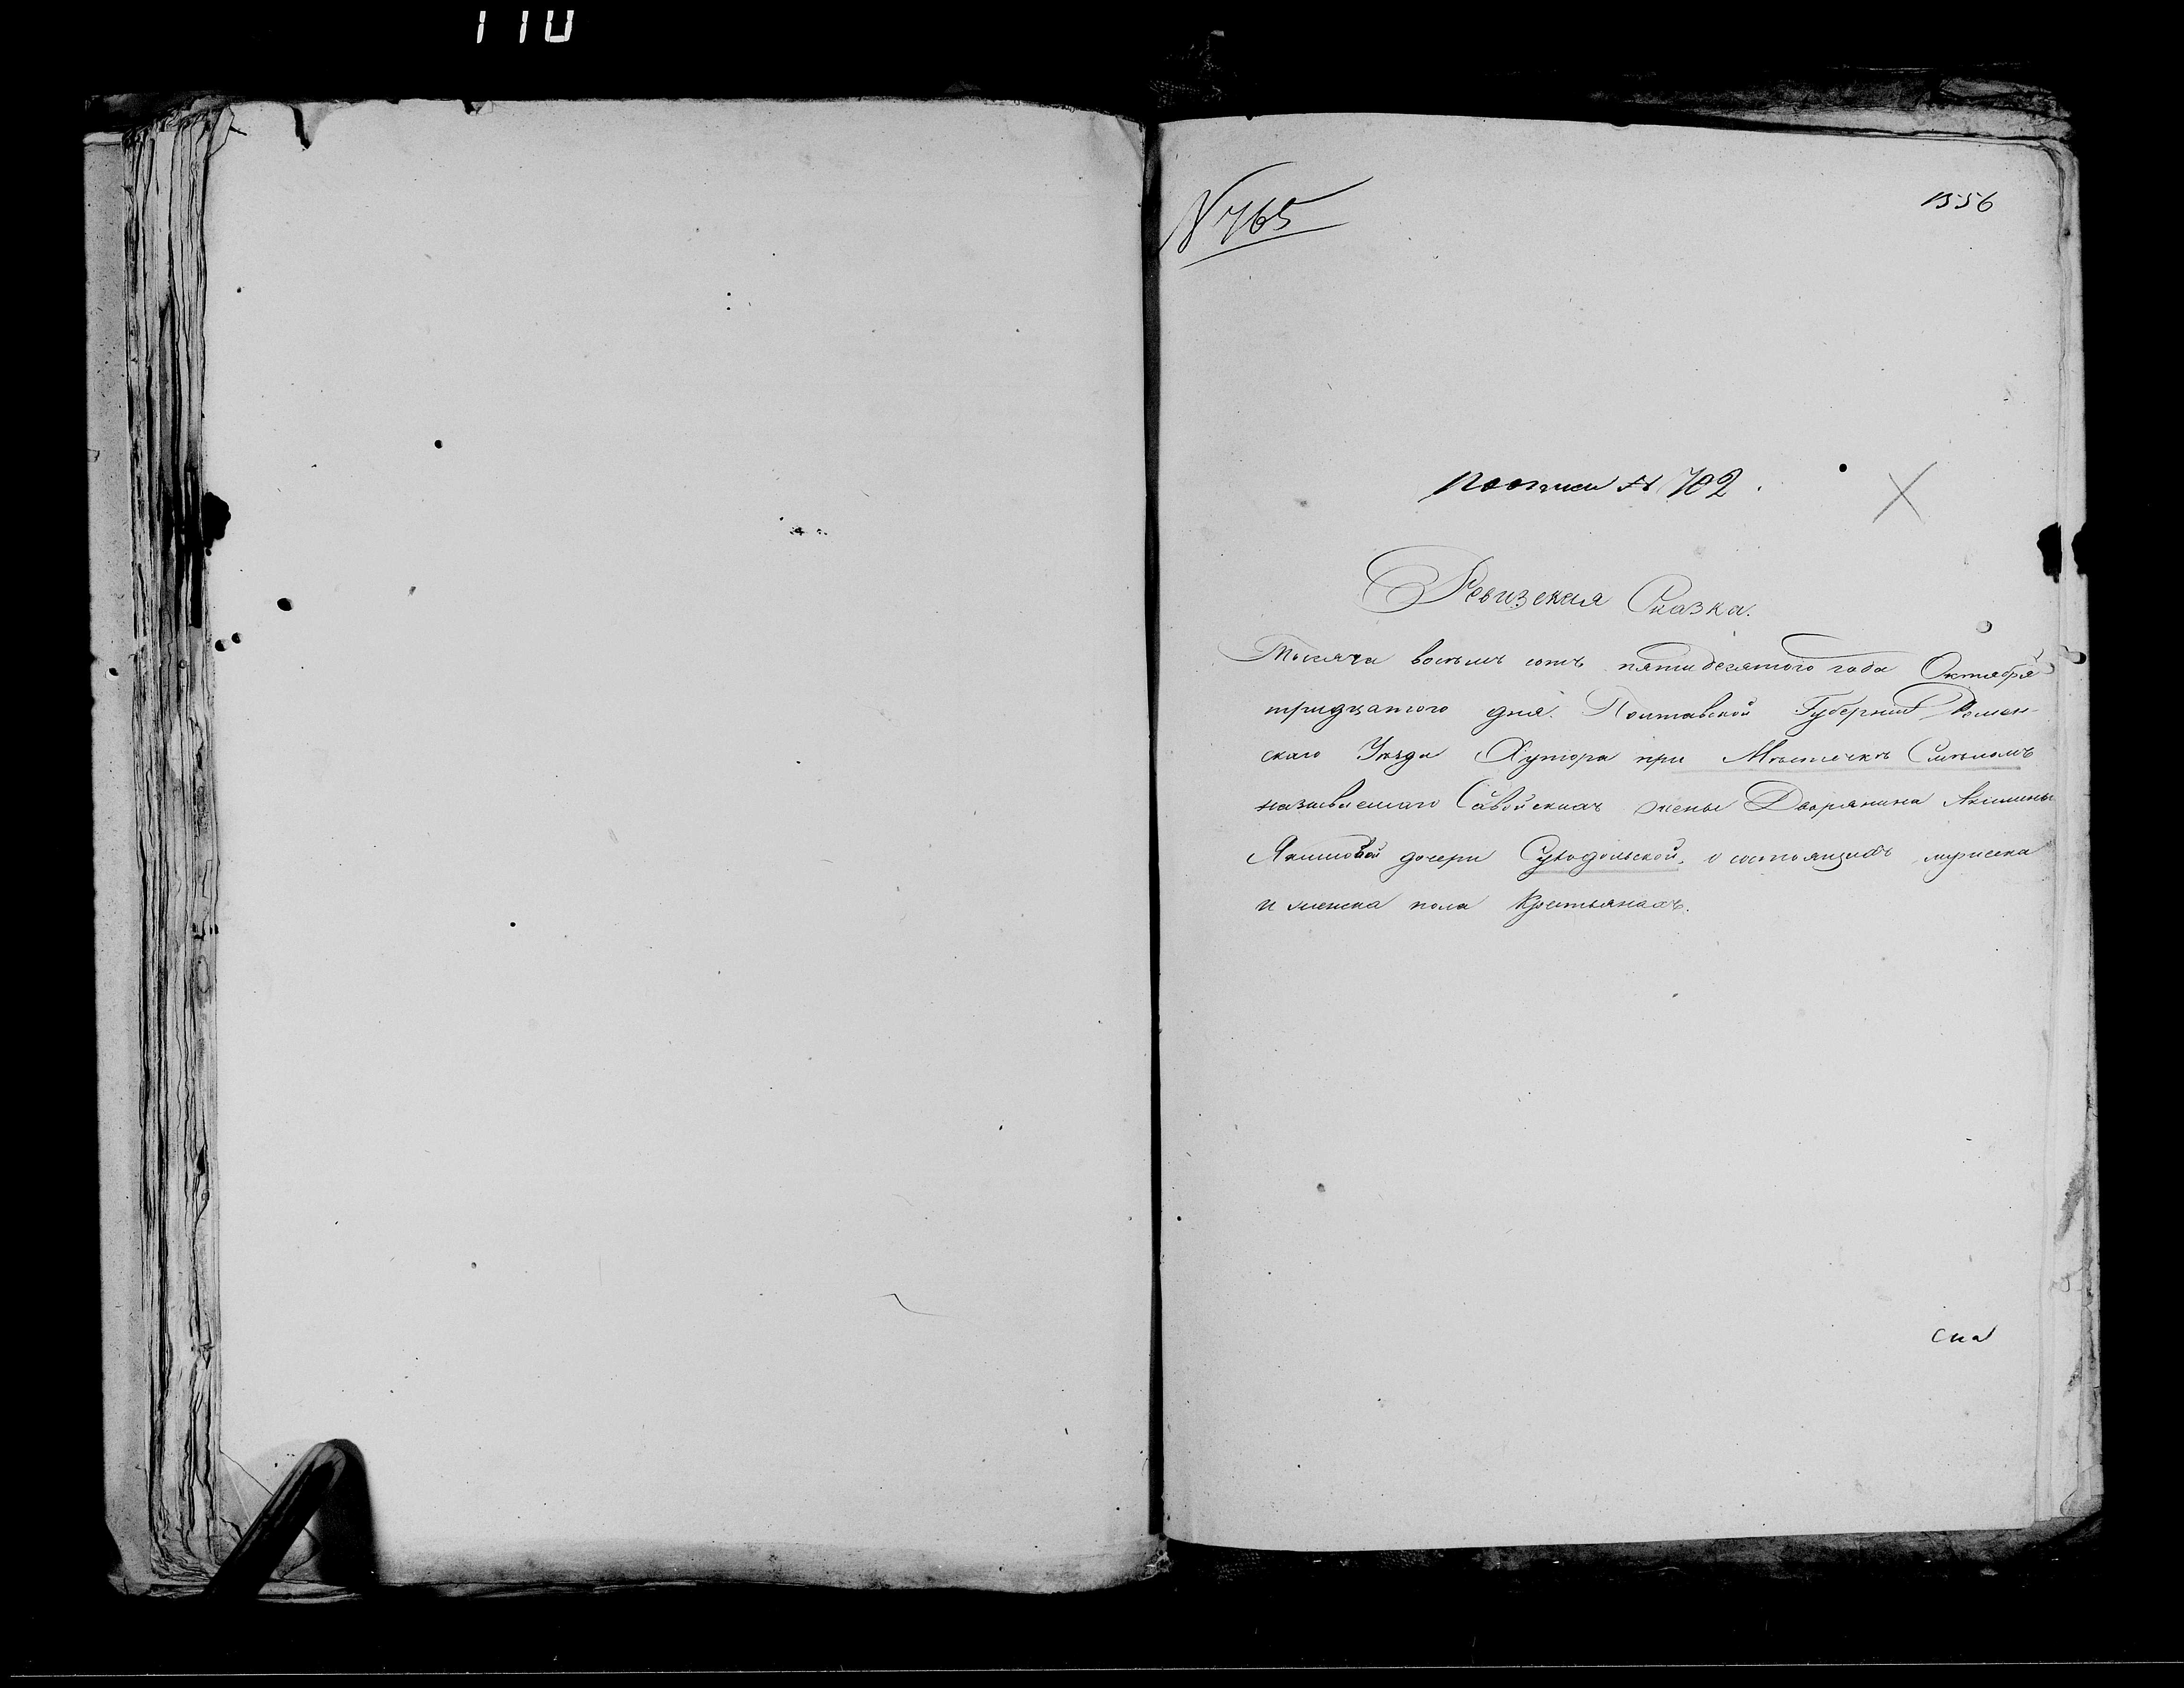 110
№ 765
1556
по описи № 702.
Ревизская Сказка.
Тысяча восемь сотъ пятидесятого года Октября
тридцатого дня. Полтавской Губерніи Ромен-
скаго Уезда Хутора при Местечкѣ Смѣломъ
называемаго жены Дворянина Акилины
Якимовой дочери Суходольской, о состоящихъ мужеска
и женска пола Крестьянахъ.